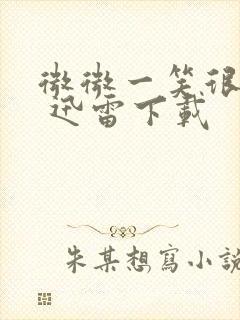 微微一笑很
迅雷下載
朱某想寫小說